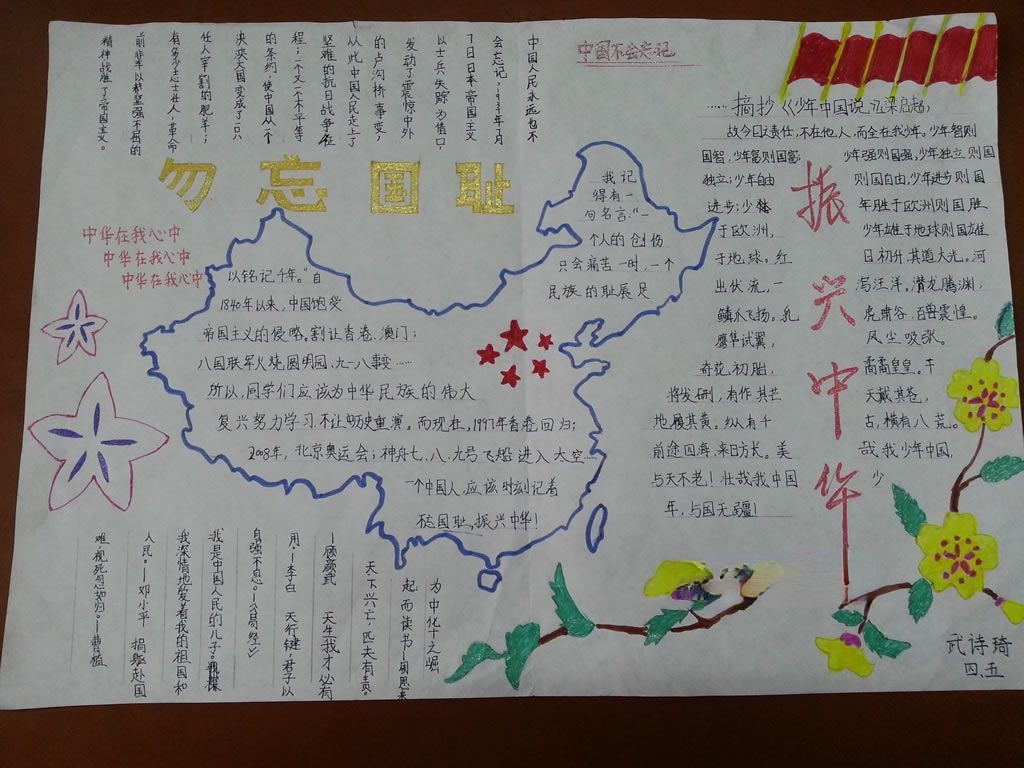 中国不会忘记
中国人民永远也不
会忘记1937年7月
7日日本帝国主义
以士兵失踪为借口,
发动了震惊中外
的卢沟桥事变,
从此中国人民走上了
坚难的抗日战争征
程;一个又一个不平等
的条约,使中国从一个
泱泱大国变成了一口
任人宰割的肥羊;
有多少志士廿人,革命
前辈以极坚强不屈的
精神战胜了帝国主义。
勿忘国耻
中华在我心中
中华在我心中
中华在我心中
我记
得有一
句名言:“一
个人的创伤
只会痛苦一时,一个
民族的耻辱足
以铭记千年。”自
1840年以来,中国饱受
帝国主义的侵略。割让香港、澳门;
八国联军火烧圆明园、九一八事变……
所以,同学们应该为中华民族的伟大
复兴努力学习。不让历史重演。而现在,1997年香港回归;
2008年,北京奥运会;神舟七、八、九号飞船进入太空……
一个中国人,应该时刻记着
国耻,振兴中华!
……摘抄《少年中国说》梁启超
故今日之责任,不在他人,而全在我少年。少年智则
国智,少年富则国富, 少年强则国强,少年独立则国
独立;少年自由 则国自由,少年进步则国
进步;少年 年胜于欧洲则国胜
于欧洲, 少年雄于地球则国雄
于地球。红 日初升,其道大光。河
出伏流,一 泻汪洋。潜龙腾渊,
鳞爪飞扬。乳 虎啸谷,百兽震惶。
鹰隼试翼, 风尘吸张。
奇花初胎, 矞矞皇皇。干
将发硎,有作其芒 天戴其苍,
地履其黄。纵有千 古,横有八荒。
前途四海,来日方长。美 哉我少年中国,
与天不老!壮哉我中国 少
年,与国无疆!
振兴中华
为中化十之崛
起而读书—周恩来
天下兴亡,匹夫有责。
—顾颜武 天生我才必有
用。—李白 天行键,君子以
自强不息。—《易经》
我是中国人民的儿子。
我深情地爱着我的祖国和
人民。—邓小平 捐躯赴国
难,视死忽如归。—曹植
武诗琦
四、五